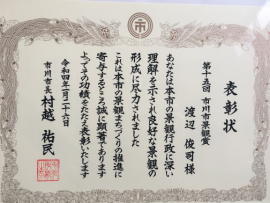 表彰状
第十五回 市川市景観賞
渡辺 俊司様
あなたは本市の景観行政に深い
理解を示され良好な景観の
形成に尽力されました
これは本市の景観まちづくりの推進に
寄与するところ誠に顕著であります
よってその功績をたたえ表彰いたします
令和四年一月二十六日
市川市長 村越 祐民